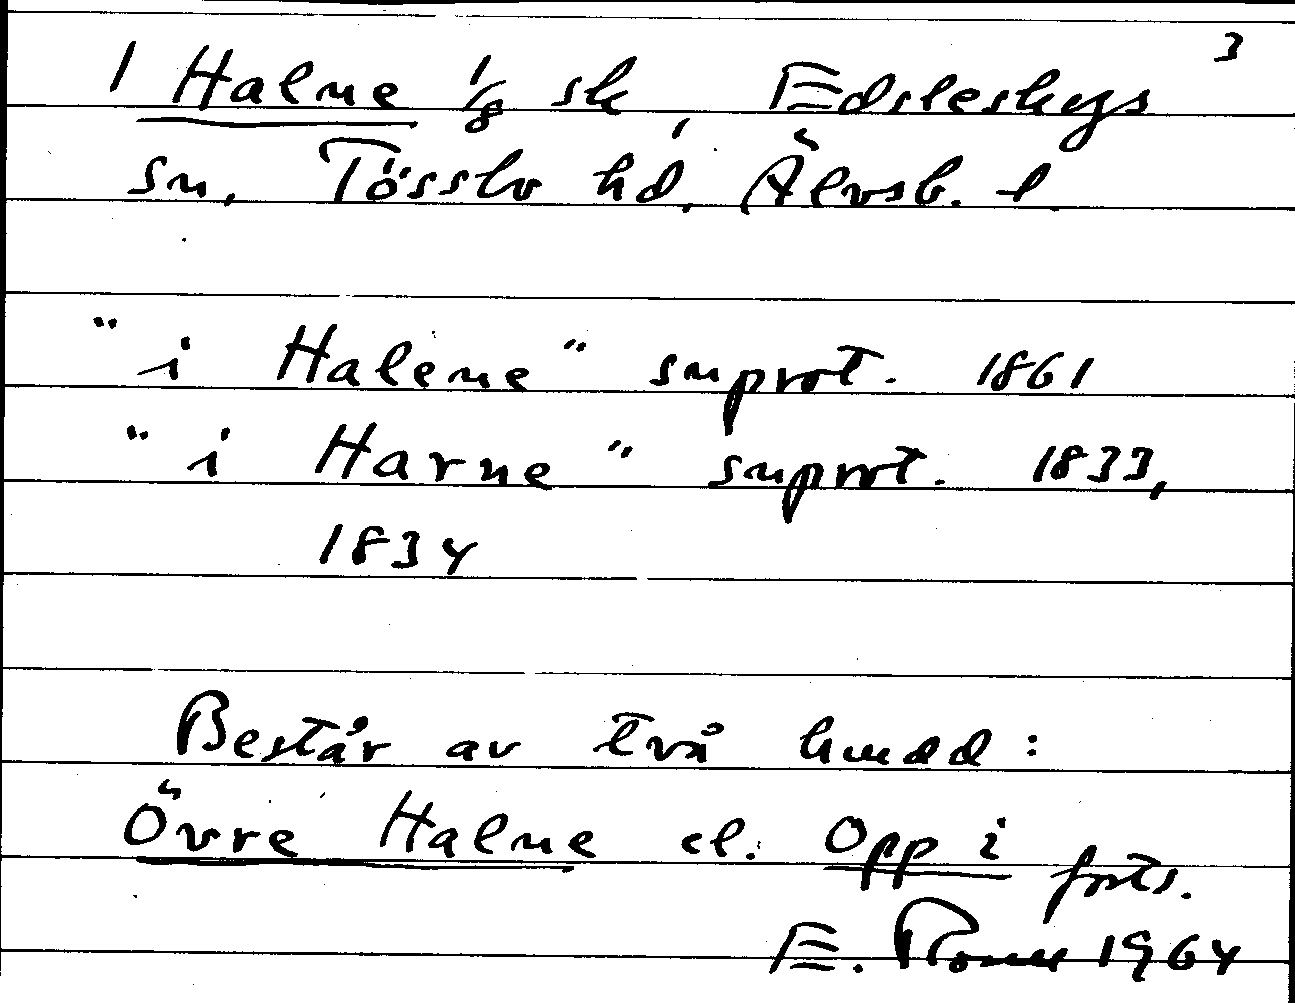 3
1 Halne 1/8 sk, Edsleskogs
sn, Tösslo hd, Älvsb. l.
"i Halene" snprot. 1861
"i Harne" snprot. 1833,
1834
Består av två hmdd:
Övre Halne el. Opp i forts.
E. 1964